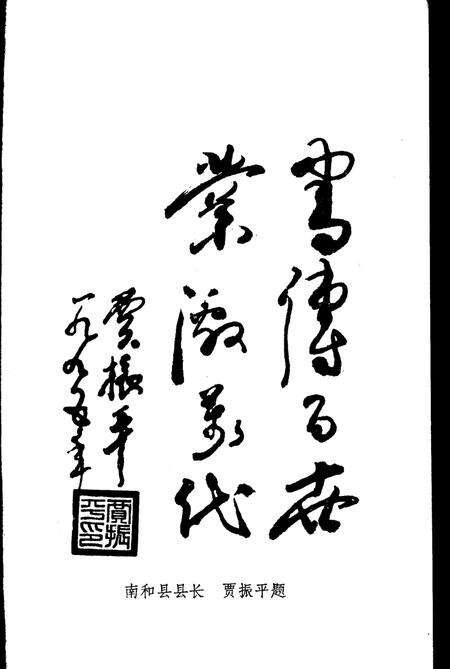 書傳百世
業激萬代
賈振平
一九九五年
賈振平印
南和县县长 贾振平题